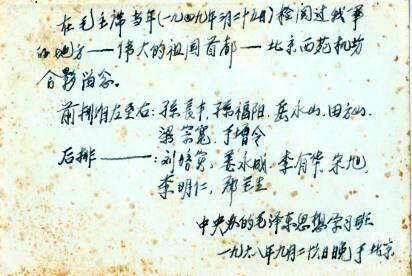 在毛主席当年(一九四九年三月二十五日)检阅过我军
的地方——伟大的祖国首都——北京西苑机场
合影留念。
前排由左至右：孫長才，孫福阳，岳永山，田方山，
梁宗寛，于增令
后排———：刘培寅，姜永明，李有华，宋旭，
李明仁，邢
中央办的毛泽东思想学习班
一九六八年九月二六日晚于北京